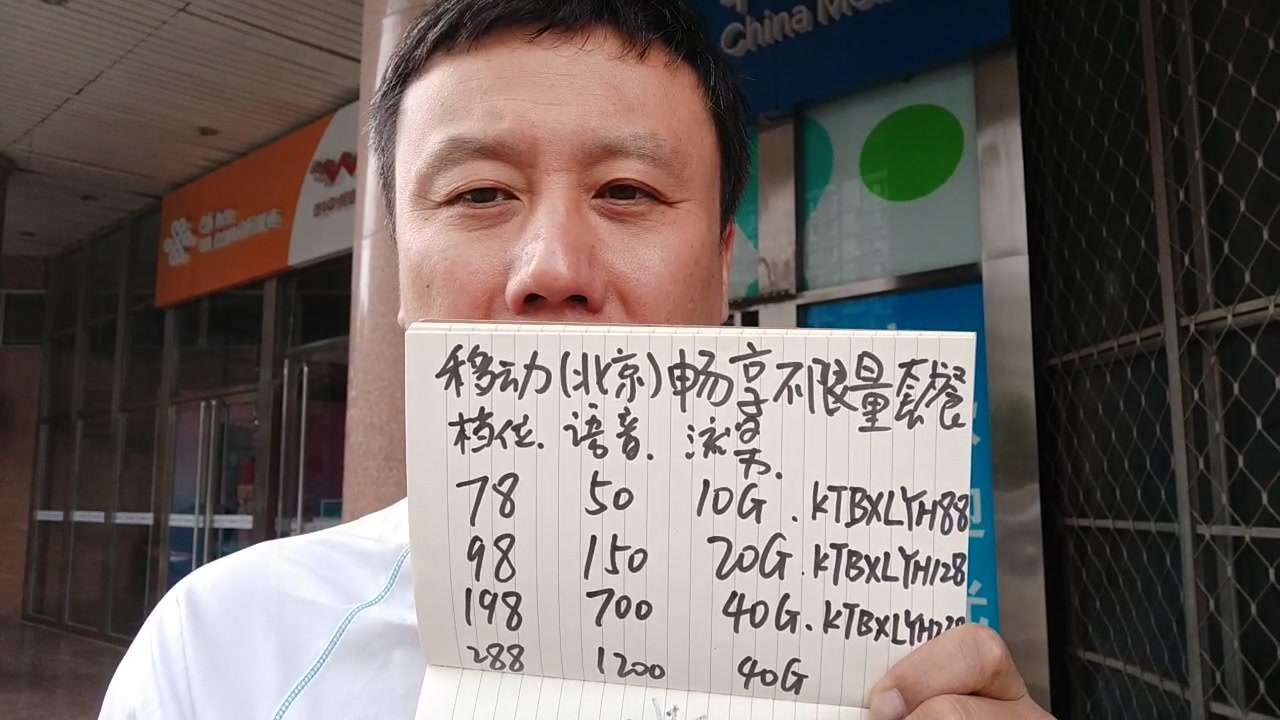 China Mo
移动(北京)畅享不限量套餐
档位. 语音. 流量.
78 50 10G . KTBXLYH88
98 150 20G . KTBXLYH128
198 700 40G. KTBXLYH238
288 1200 40G